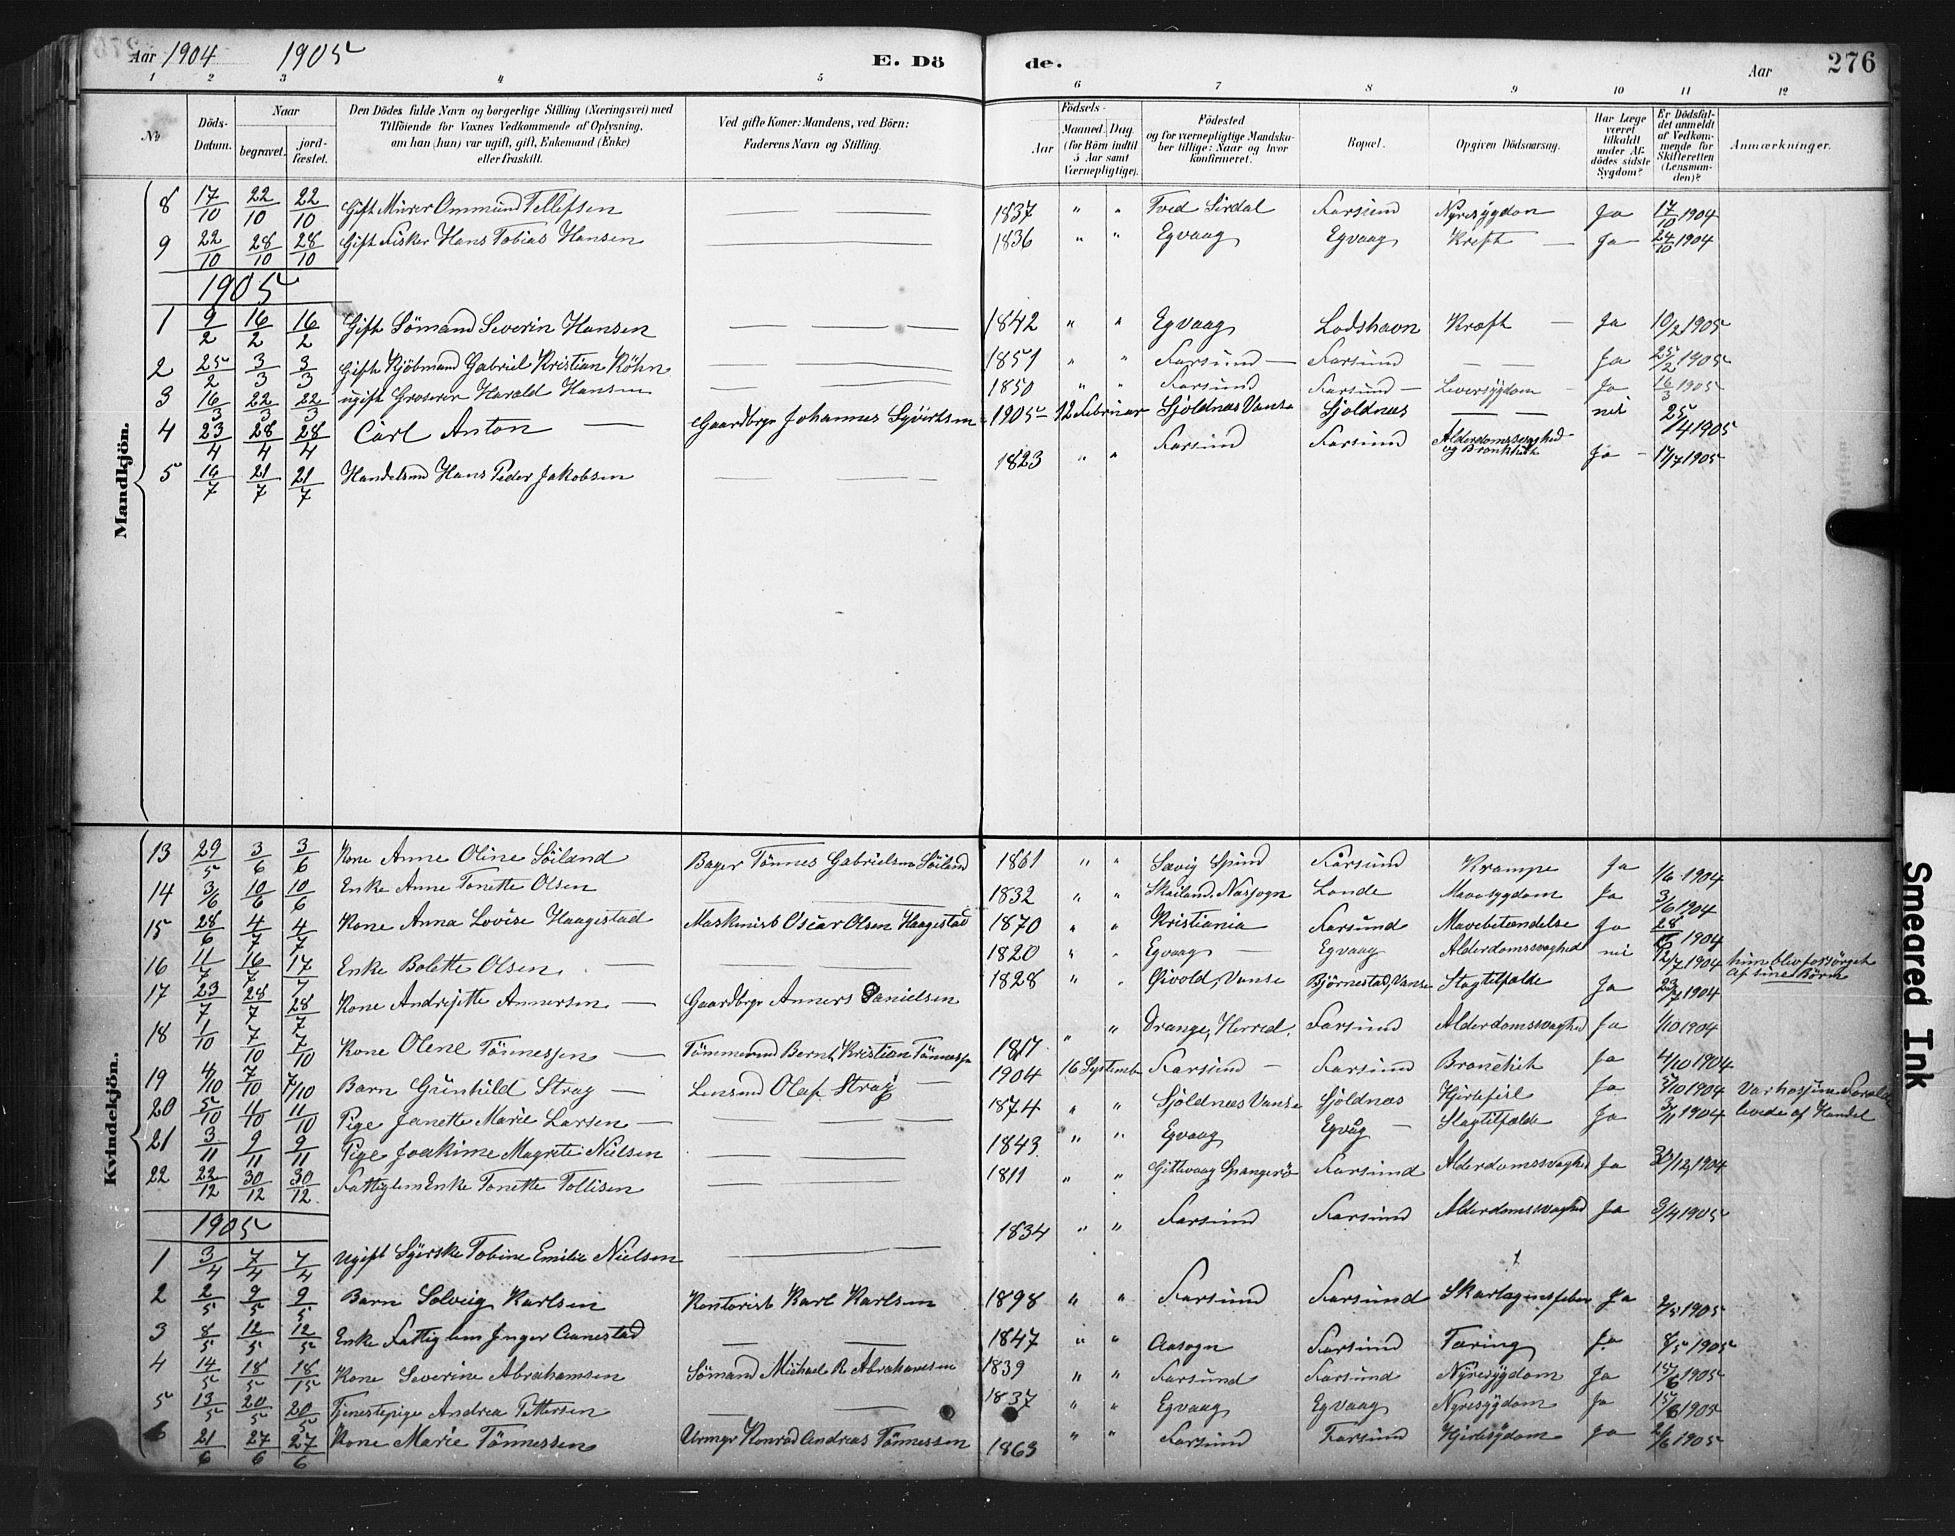 Aar 1904 1905 E. Dö de. Aar 276
1 2 3 4 5 6 7 8 9 10 11 12
No Döds-Datum. Naar begravet. jord-fæstet. Den Dödes fulde Navn og borgerlige Stilling (Næringsvei) med Tilföiende for Voxnes Vedkommende af Oplysning, om han (hun) var ugift, gift, Enkemand (Enke) eller fraskilt. Ved gifte Koner: Mandens, ved Börn: Faderens Navn og Stilling. Födsels- Aar Maaned. Dag. (for Börn indtil 5 Aar samt Værnepligtige). Födested og for værnepligtige Mandskaber tillige: Naar og hvor konfirmeret. Bopæl. Opgiven Dödsaarsag. Har Læge været tilkaldt under Afdödes sidste Sygdom? Er Dödsfaldet anmeldt af Vedkommende for Skifteretten (Lensmanden)? Anmærkninger.
Mandkjön.
8 17/10 22/10 22/10 Gift Murer Ommund Tellefsen — — 1837 " " Tved Sirdal Farsund Nyresygdom Ja 17/10 1904
9 22/10 28/10 28/10 Gift Fisker Hans Tobias Hansen — — 1836 " " Egvaag Egvaag Kreft — Ja 24/10 1904
1905
1 9/2 16/2 16/2 Gift Sömand Severin Hansen — — — 1842 " " Egvaag Lodshavn Kræft — Ja 10/2 1905
2 25/2 3/3 3/3 Gift Kjöbmand Gabriel Kristian Köhn — — 1851 " " Farsund — Farsund — — Ja 25/2 1905
3 16/3 22/3 22/3 ugift Groserer Harald Hansen — — 1850 " " Farsund Farsund — Leversygdom — Ja 16/3 1905
4 23/4 28/4 28/4 Carl Anton — Gaardbrgr Johannes Syvertsen 1905 12 Februar Sjoldnæs Vanse Sjoldnæs — — nei 25/4 1905
5 14/7 21/7 21/7 Handelsmd Hans Peder Jakobsen — — 1823 " " Farsund Farsund Alderdomssvaghed og Bronkhit Ja — 17/7 1905
Kvindekjön.
13 29/5 3/6 3/6 Kone Anne Oline Söiland Bager Tönnes Gabrielsen Söiland 1861 " " Sævig Spind Farsund Krampe Ja 1/6 1904
14 3/6 10/6 10/6 Enke Anne Tonette Olsen — 1832 " " Skeiland, Næsogn Lande Mavesygdom Ja 3/6 1904
15 28/6 4/7 4/7 Kone Anna Lovise Haagestad Maskinist Oscar Olsen Haagestad 1870 " " Kristiania Farsund Mavebetændelse Ja 28/6 1904
16 11/7 16/7 17/7 Enke Bolette Olsen — — — 1820 " " Egvaag — Egvaag Alderdomssvaghed nei 12/7 1904 hun blev forsörget af sine Börn
17 23/7 28/7 28/7 Kone Andrejette Annersen — Gaardbrgr Anners Danielsen 1828 " " Öivold, Vanse Björnestad, Vanse Slagtilfælde Ja 23/7 1904
18 1/10 7/10 7/10 Kone Olene Tönnessen — Tömmermd Bernt Kristian Tönnessen 1817 " " Drange, Herred Farsund Alderdomssvaghed Ja 1/10 1904
19 4/10 7/10 7/10 Barn Gunhild Stray — Lensmd Olaf Stray — 1904 16 September Farsund — Farsund Bronchit Ja 4/10 1904
20 5/10 11/10 11/10 Pige Janette Marie Larsen — — 1874 " " Sjöldnæs Vanse Sjöldnæs Hjertefeil Ja 5/10 1904 Var hos sine Foræld
21 3/11 9/11 9/11 Pige Joakime Magrete Nielsen — — 1843 " " Egvaag Egvåg — Slagtilfælde Ja 3/11 1904 levede af Handel
22 22/12 30/12 30/12 Fattiglem Enke Tonette Tollisen — — 1811 " " Gittevaag Spangerö Farsund Alderdomssvaghed Ja /12 1904
1905
1 3/4 7/4 7/4 Ugift Syerske Tobine Emilie Nielsen — 1834 " " Farsund Farsund Alderdomssvaghed Ja 3/4 1905
2 2/5 9/5 9/5 Barn Solveig Karlsen Kontorist Karl Karlsen 1898 " " Farsund Farsund Skarlagensfeber Ja 2/5 1905
3 8/5 12/5 12/5 Enke Fattiglem Inger Aanestad — — 1847 " " Aasogn Farsund Tæring Ja 8/5 1905
4 14/5 18/5 18/15 Kone Severine Abrahamsen Sömand Michael R Abrahamsen 1839 " " Farsund Farsund Nyresygdom Ja 15/6 1905
5 13/5 20/5 20/5 Tjenestepige Andrea Pettersen — — 1837 " " Egvaag Egvaag Nyresygdom Ja 15/6 1905
6 21/6 27/6 27/6 Kone Marie Tönnessen Urmgr Konrad Andreas Tönnessen 1863 " " Farsund Farsund Hjertesygdom Ja 21/6 1905
Smeared Ink